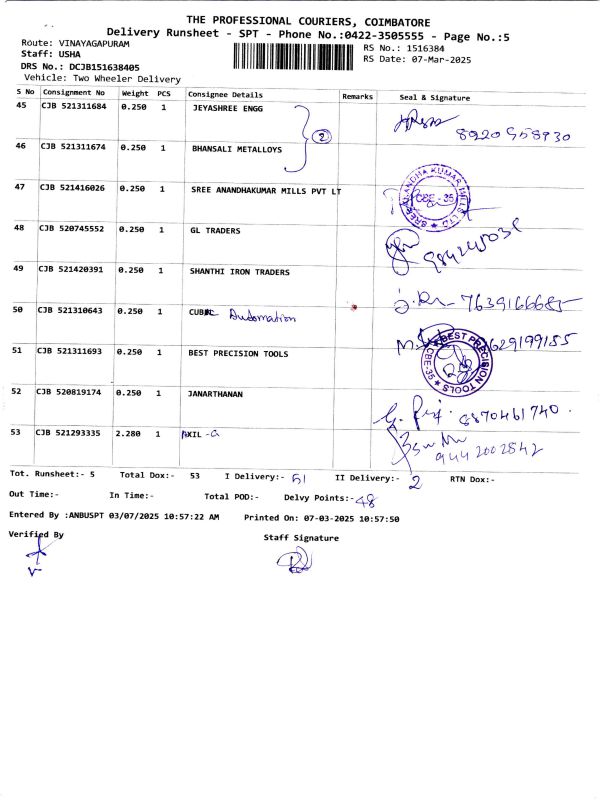 THE PROFESSIONAL COURIERS, COIMBATORE
Delivery Runsheet - SPT - Phone No.:0422-3505555 - Page No.:5
Route: VINAYAGAPURAM
RS No.: 1516384
Staff: USHA
RS Date: 07-Mar-2025
DRS No.: DCJB151638405
Vehicle: Two Wheeler Delivery
S No Consignment No Weight PCS Consignee Details Remarks Seal & Signature
45 CJB 521311684 0.250 1 JEYASHREE ENGG
2
46 CJB 521311674 0.250 1 BHANSALI METALLOYS
47 CJB 521416026 0.250 1 SREE ANANDHAKUMAR MILLS PVT LT
SREE ANANDHA KUMAR MILLS LTD CBE-35
48 CJB 520745552 0.250 1 GL TRADERS
49 CJB 521420391 0.250 1 SHANTHI IRON TRADERS
7639166685
50 CJB 521310643 0.250 1 CUBIC Automation
9629199185
51 CJB 521311693 0.250 1 BEST PRECISION TOOLS
BEST PRECISION TOOLS CBE-35
52 CJB 520819174 0.250 1 JANARTHANAN
8870461740
53 CJB 521293335 2.280 1 AXIL-G
9442002842
Tot. Runsheet:- 5 Total Dox:- 53 I Delivery:- 51 II Delivery:- 2 RTN Dox:-
Out Time:- In Time:- Total POD:- Delvy Points:- 48
Entered By :ANBUSPT 03/07/2025 10:57:22 AM Printed On: 07-03-2025 10:57:50
Verified By Staff Signature